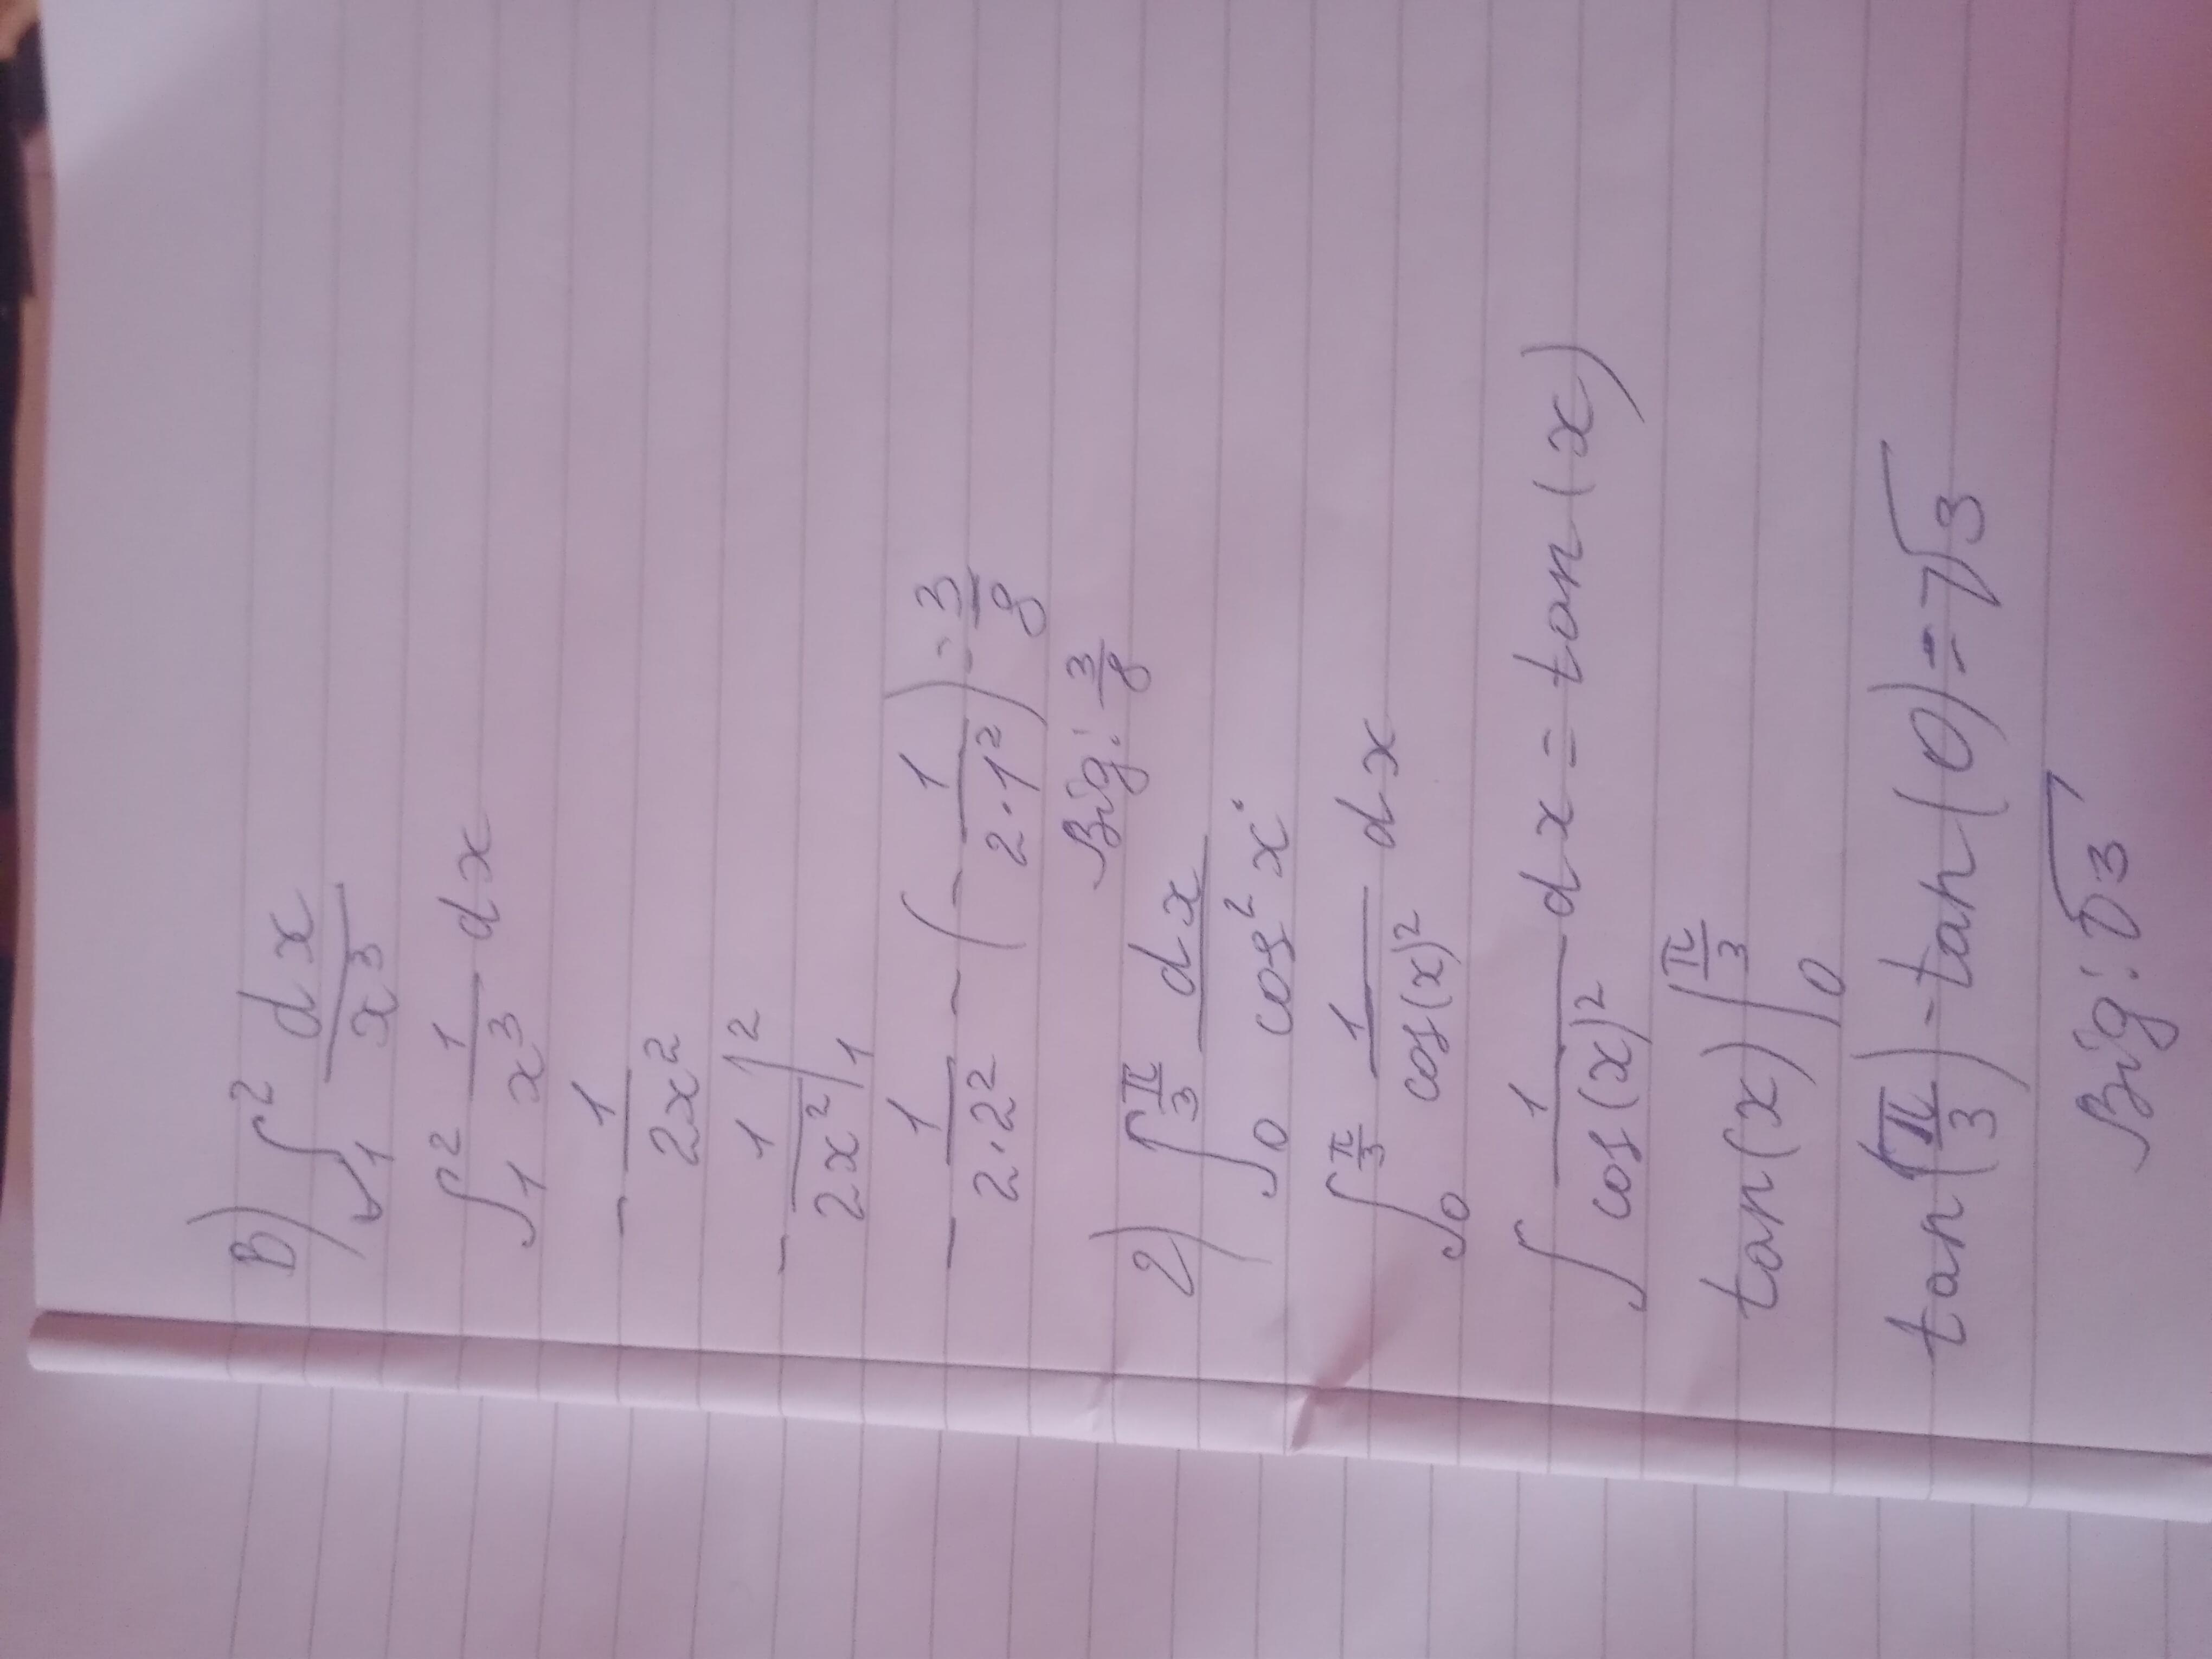 в) ∫₁² dx/x³
∫₁² 1/x³ dx
- 1/2x²
- 1/2x² |₁²
- 1/2·2² - (- 1/2·1²) = 3/8
Від: 3/8
г) ∫₀^(π/3) dx/cos²x
∫₀^(π/3) 1/cos(x)² dx
∫ 1/cos(x)² dx = tan(x)
tan(x) |₀^(π/3)
tan(π/3) - tan(0) = √3
Від: √3